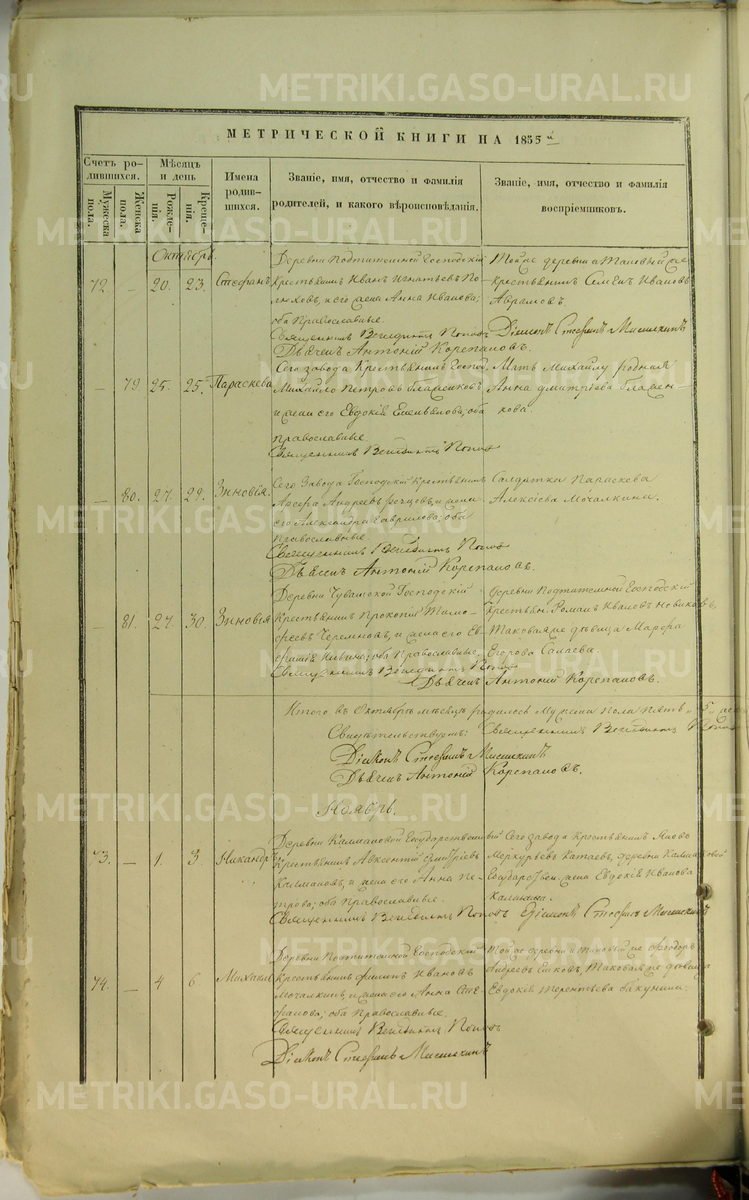 МЕТРИЧЕСКОЙ КНИГИ НА 1855
Счетъ ро-
дившихся.
Мужеска
пола.
Женска
пола.
Мѣсяцъ
и день
Рожде-
нія.
Креще-
нія.
Имена
родив-
шихся.
Званіе, имя, отчество и фамилія
родителей, и какого вѣроисповѣданія.
Званіе, имя, отчество и фамилія
воспріемниковъ.
Октябрь
72 – 20. 23. Стефанъ
Деревни Подтитемной Господскій
крестьянинъ Иванъ Игнатьевъ По-
люховъ, и его жена Анна Иванова;
оба Православные.
Священникъ Венедиктъ Поповъ
Дьячекъ Антоній Корепановъ.
Той же деревни и
крестьянинъ Семенъ Ивановъ
Абрамовъ
Діаконъ Стефанъ Мисилкинъ
– 79 25. 25. Параскева
Сего завода Крестьянинъ Госпо.
Михайло Петровъ
и жена его Евдокія оба
православные
Священникъ Венедиктъ Поповъ
Мать Михайлу родная
Анна Дмитріева
– 80. 27. 29. Зиновія.
Сего Завода Господскій крестьянинъ
Андреевъ и жена
его Александра Гаврилова; оба
Православные.
Священникъ Венедиктъ Поповъ
Дьячекъ Антоній Корепановъ.
Солдатка Параскова
Алексіева Мочалкина.
– 81. 27. 30. Зиновія
Деревни Чувашской Господскій
Крестьянинъ Прокопій Тимо-
феевъ Черемновъ, и жена его Ев-
оба Православные.
Священникъ Венедиктъ Поповъ
Дьячекъ Антоній Корепановъ.
Деревни Подтитемной Господскій
Крестьян. Романъ Ивановъ Новиковъ,
Таковая же дѣвица Марфа
Егорова Салаева.
Итого въ Октябрѣ мѣсяцѣ родилось Мужеска пола пять и
Свидѣтельствуютъ: Священникъ Венедиктъ Поповъ
Діаконъ Стефанъ Мисилкинъ
Дьячекъ Антоній Корепановъ.
Ноябрь.
73. – 1. 3 Никандръ
Деревни Калмаковой Государственный
крестьянинъ Авксентій Дмитріевъ
Калмаковъ, и жена его Анна Пе-
трова; оба Православные.
Священникъ Венедиктъ Поповъ
Сего завода крестьянинъ Яковъ
Меркурьевъ Катаевъ, деревни Калмаковой
Государствен. жена Евдокія Иванова
Діаконъ Стефанъ Мисилкинъ
74. – 4 6 Михаилъ
Деревни Подтитемной Господскій
крестьянинъ Ивановъ
Мочалкинъ, и жена его Анна Сте-
фанова; оба Православные.
Священникъ Венедиктъ Поповъ
Діаконъ Стефанъ Мисилкинъ
Той же деревни и таковый же Ѳеодоръ
Андреевъ таковая же дѣвица
Евдокія Терентьева Бакунина.
METRIKI.GASO-URAL.RU